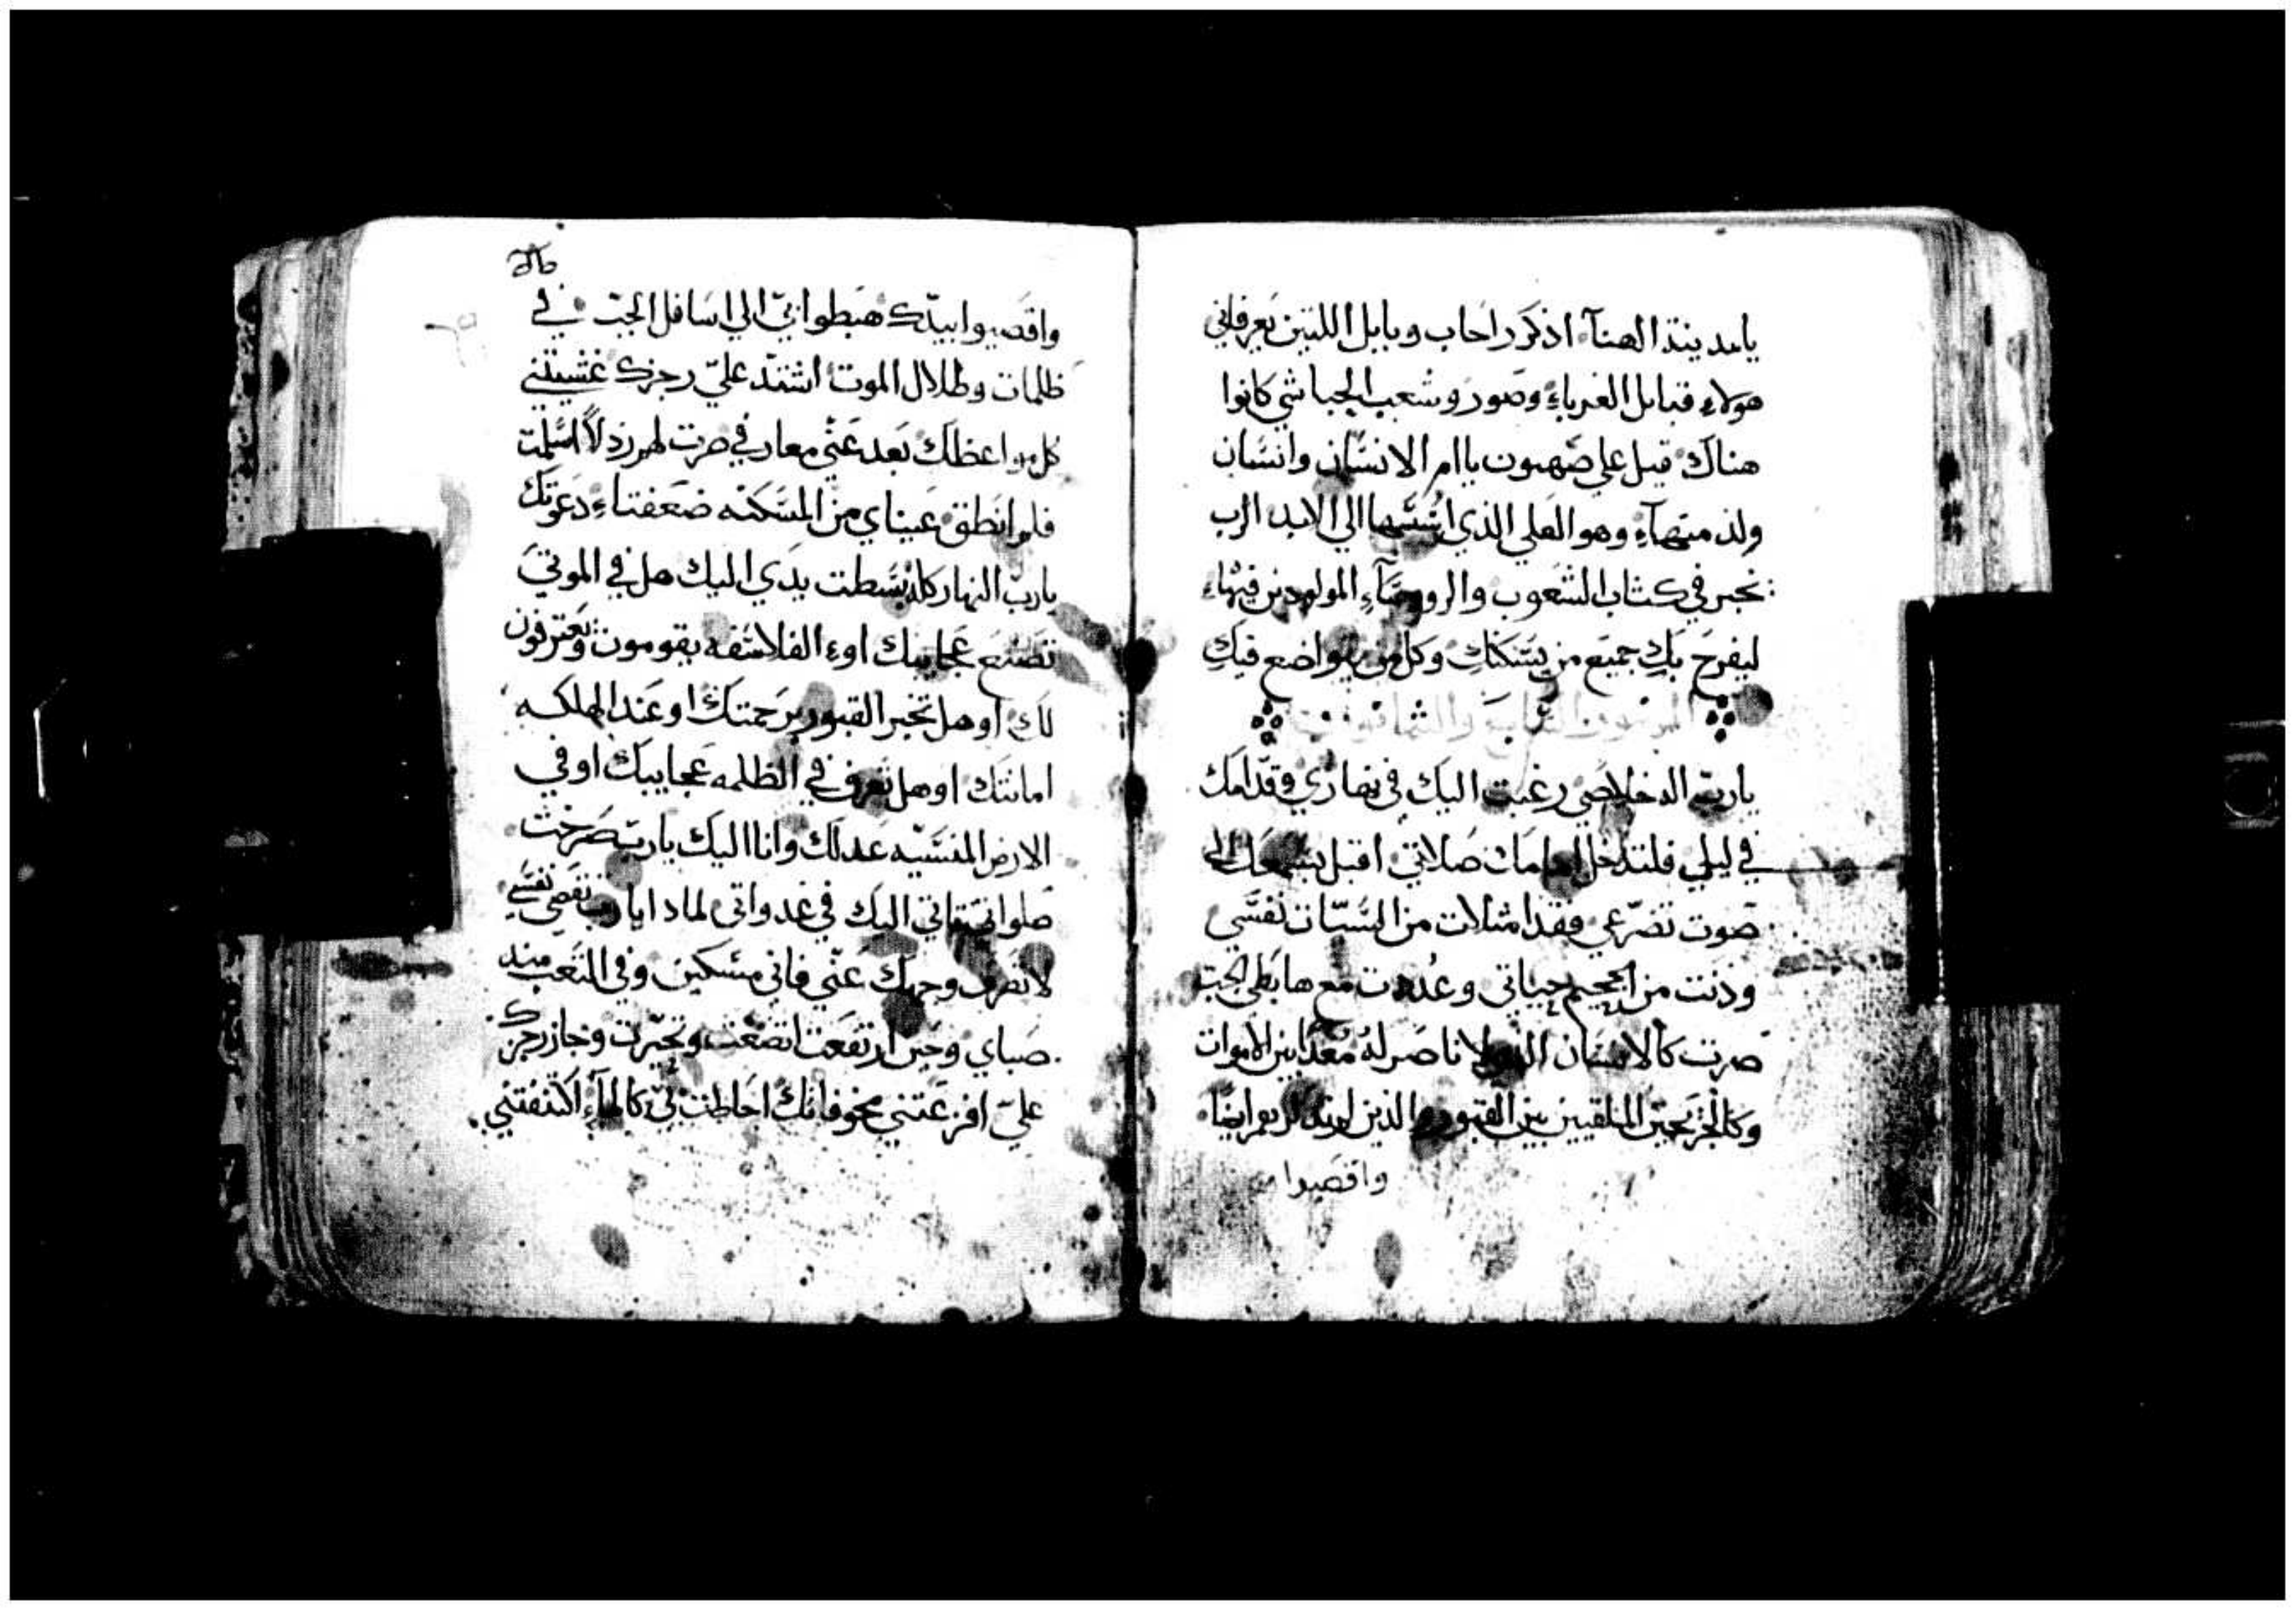 يامدينة الهنآ اذكر راحاب وبابل اللتين يعرفاني
هولاء قبايل الغرباء وصور وشعب الحباشي كانوا
هناك قيل علي صهيون ياام الانسان وانسان
ولد منهآ وهو العلي الذي اسسها الي الابد الرب
يخبر في كتاب الشعوب والروسآء المولودين فيها
ليفرح بك جميع من يسكنك وكل من يتواضع فيك
المزمور السابع والثمانون
يارب اله خلاصي رغبت اليك في نهاري وقدامك
في ليلي فلتدخل امامك صلاتي اقبل بسمعك الي
صوت تضرعي فقد امتلات من السيات نفسي
ودنت من الجحيم حياتي وعددت مع هابطي الجب
صرت كالانسان الذي لا ناصر له معدا بين الاموات
وكالجريحين الملقيين بين القبور الذين لم تذكرهم ايضا
واقصيوا
واقصيوا بيدك هبطوا بي الي اسافل الجب في
ظلمات وظلال الموت اشتد علي رجزك غشيتني
كل مواعظك بعد عني معارفي صرت لهم رذلا اسلمت
فلم انطق عيناي من المسكنه ضعفتاء دعوتك
يارب النهار كله بسطت يدي اليك هل في الموتي
تصنع عجايبك اوء الفلاسفه يقومون ويعترفون
لك او هل تخبر القبور برحمتك او عند الهلكه
امانتك او هل تعرف في الظلمه عجايبك او في
الارض المنسيه عدلك وانا اليك يارب صرخت
صلواتي تاتي اليك في غدواتي لماذا يارب تقصي نفسي
لا تصرف وجهك عني فاني مسكين وفي التعب منذ
صباي وحين ارتفعت اتضعت وتحيرت وجاز رجزك
علي افزعتني مخوفاتك احاطت بي كالماء اكتنفتني